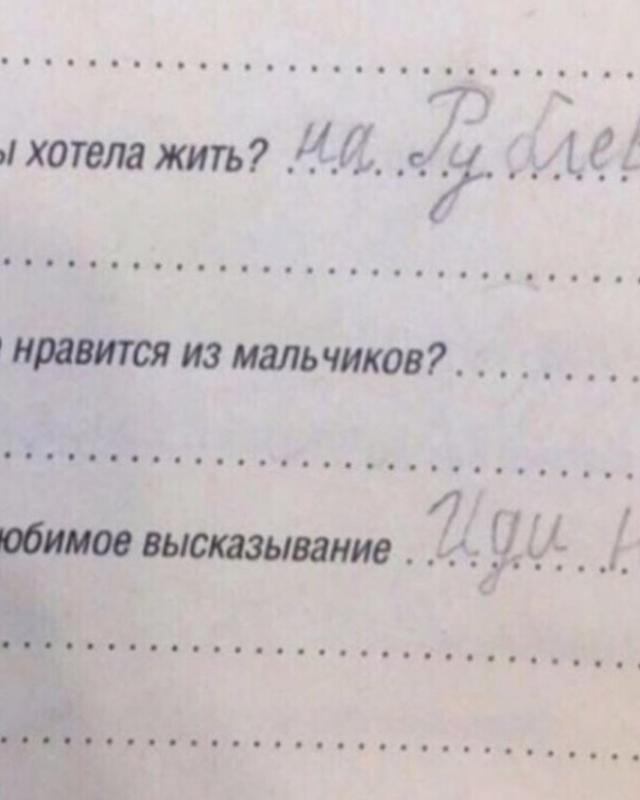 ы хотела жить? на Рублев
нравится из мальчиков?
юбимое высказывание Иди н